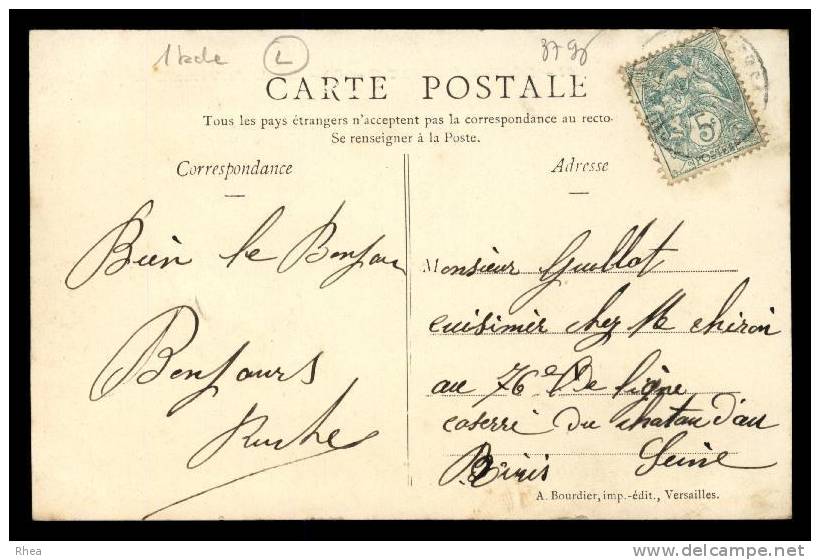 L
CARTE POSTALE
Tous les pays étrangers n'acceptent pas la correspondance au recto-
Se renseigner à la Poste.
Correspondance
Bien le Bonjour
Bonjours
Adresse
5c
POSTES
Monsieur Guillot
cuisinier chez Me Chiron
au 76e De ligne
caserne du chatau d'au
Seine
A. Bourdier, imp.-édit., Versailles.
Rhea
delcampe.net